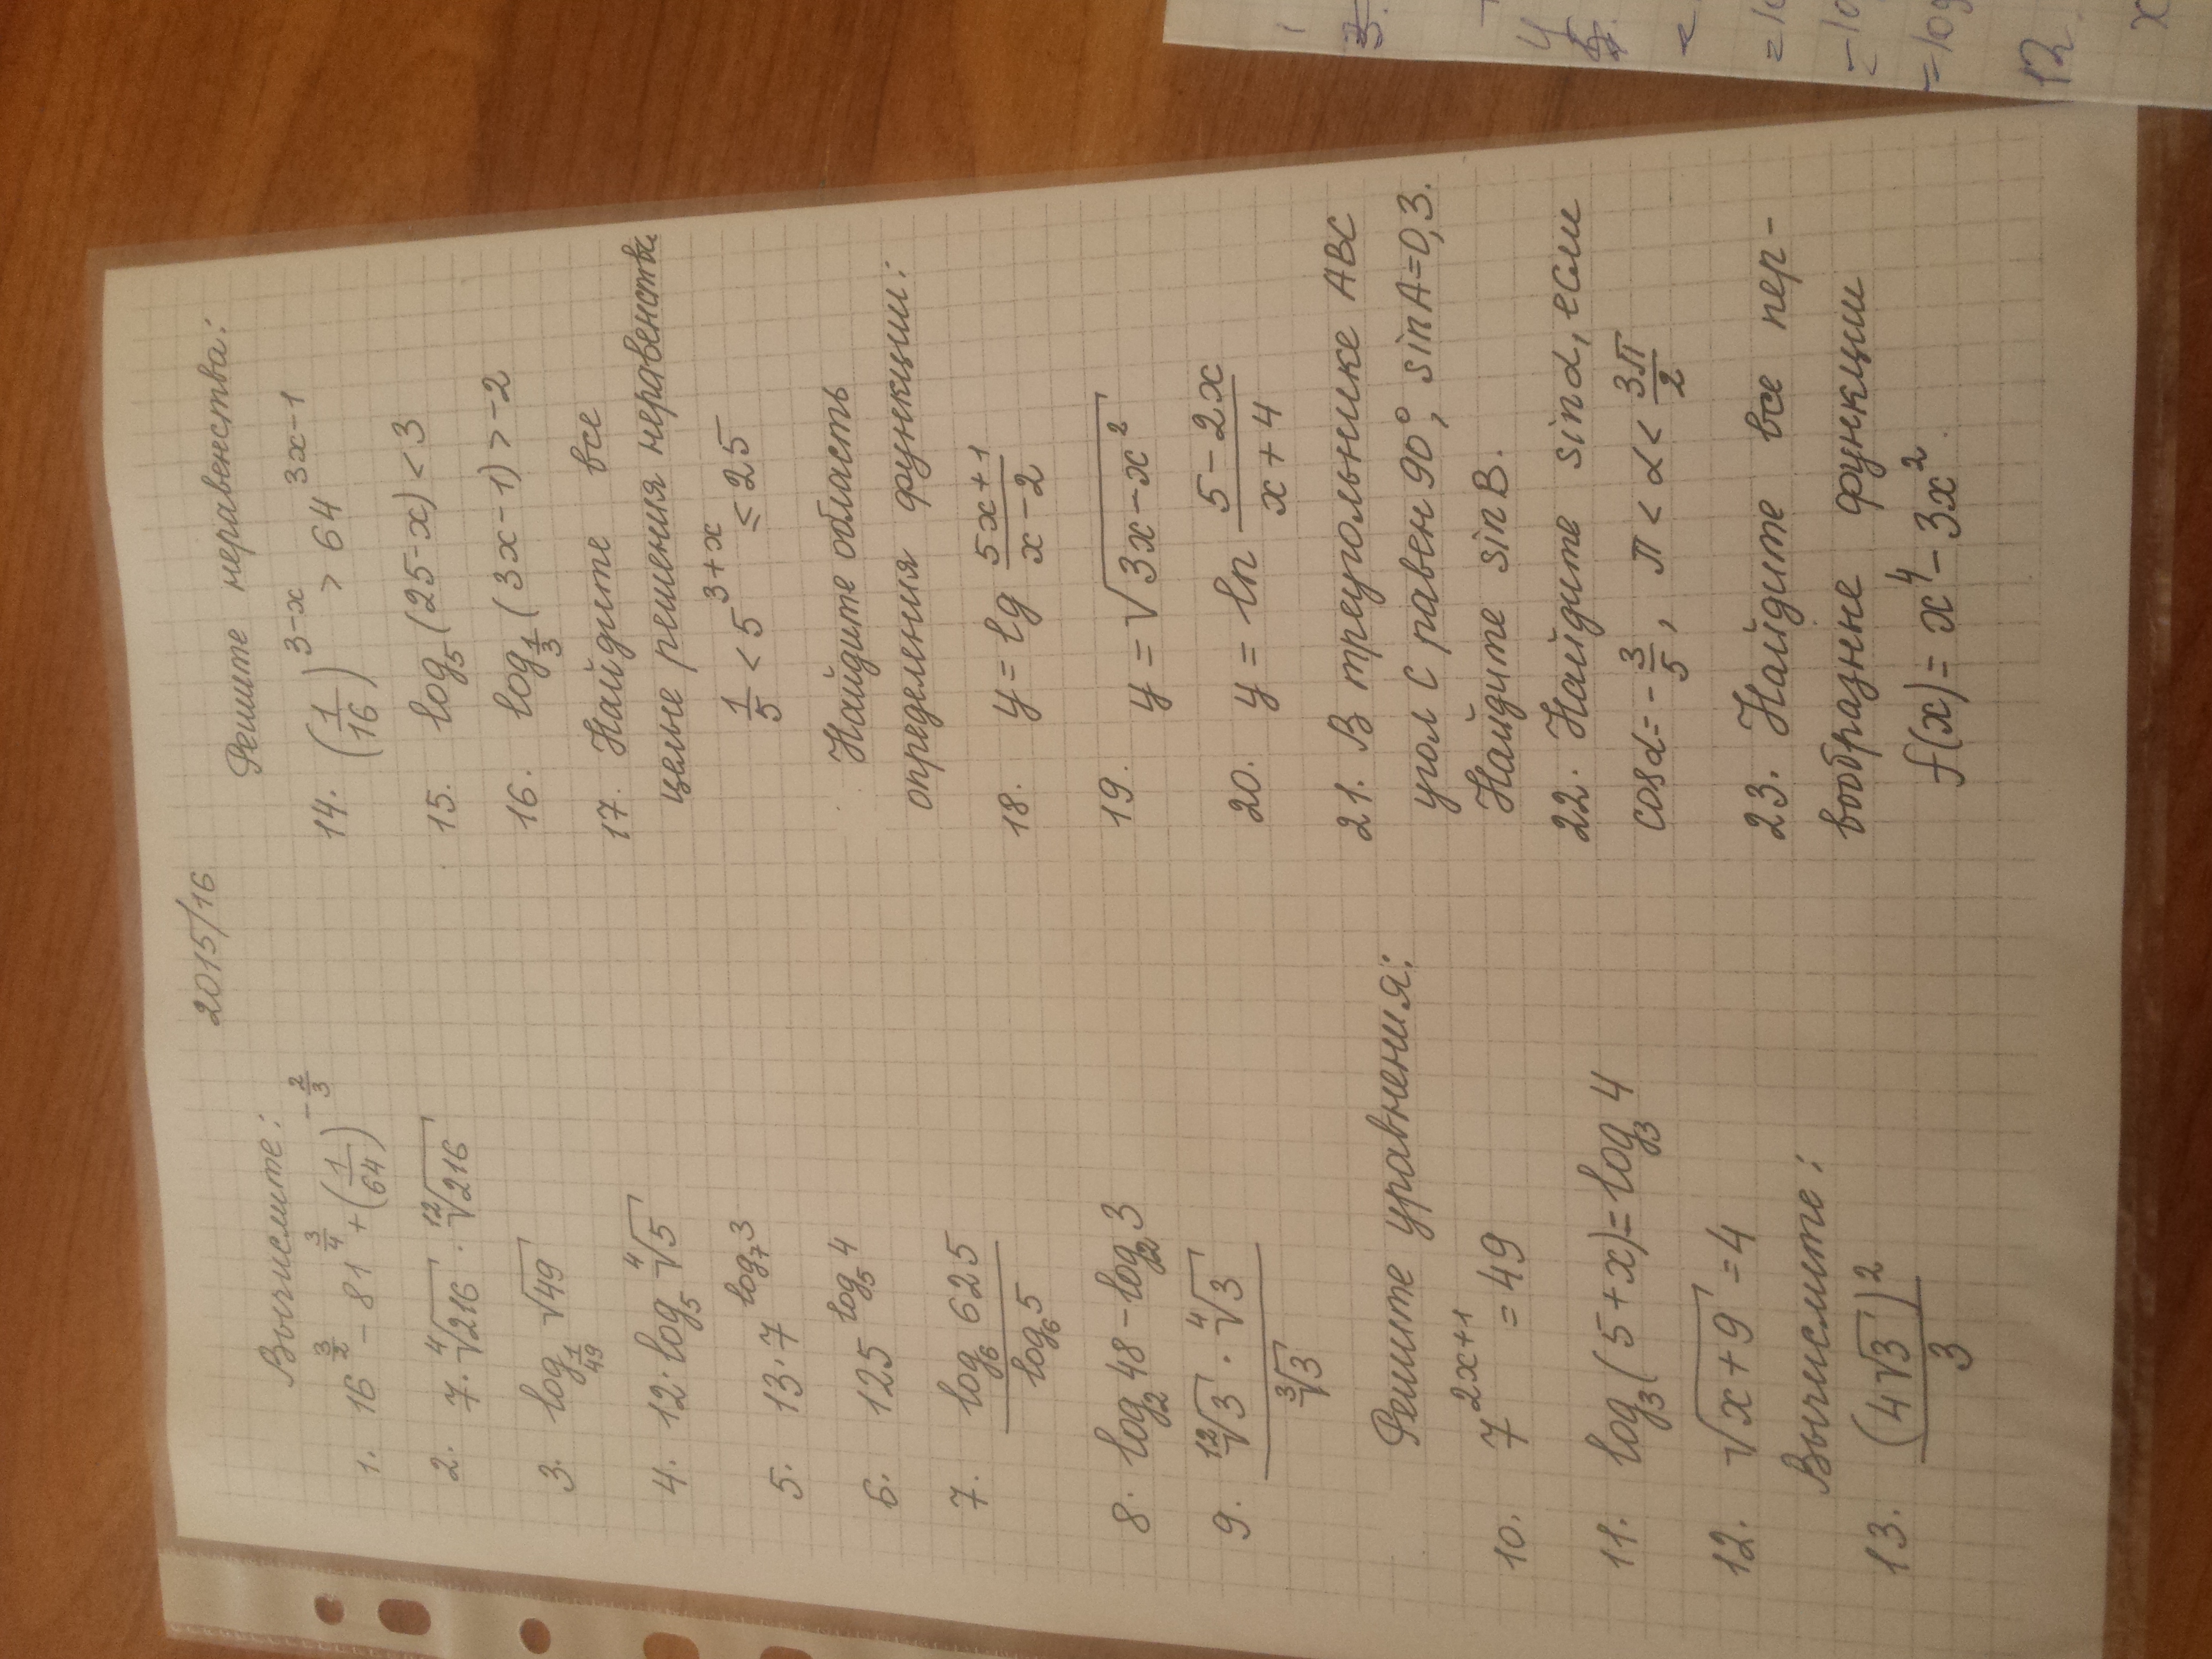 2015/16
Вычислите:
1. 16^(3/2) - 81^(3/4) + (1/64)^(-2/3)
2. 7·⁴√216 · ¹²√216
3. log_(1/49) √49
4. 12·log₅ ⁴√5
5. 13·7^(log₇3)
6. 125^(log₅4)
7. log₆625 / log₆5
8. log₂48 - log₂3
9. ¹²√3 · ⁴√3 / ³√3
Решите уравнения:
10. 7^(2x+1) = 49
11. log₃(5+x) = log₃4
12. √(x+9) = 4
Вычислите:
13. (4√3)² / 3
Решите неравенства:
14. (1/16)^(3-x) > 64^(3x-1)
15. log₅(25-x) < 3
16. log_(1/3)(3x-1) > -2
17. Найдите все
целые решения неравенства
1/5 < 5^(3+x) ≤ 25
Найдите область
определения функции:
18. y = lg (5x+1)/(x-2)
19. y = √(3x-x²)
20. y = ln (5-2x)/(x+4)
21. В треугольнике ABC
угол C равен 90°, sin A=0,3.
Найдите sin B.
22. Найдите sin α, если
cos α = -3/5, π < α < 3π/2
23. Найдите все пер-
вообразне функции
f(x) = x⁴ - 3x².
12
x